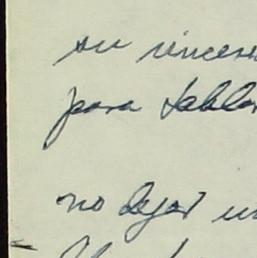 su sincer
para hablar
no dejar un